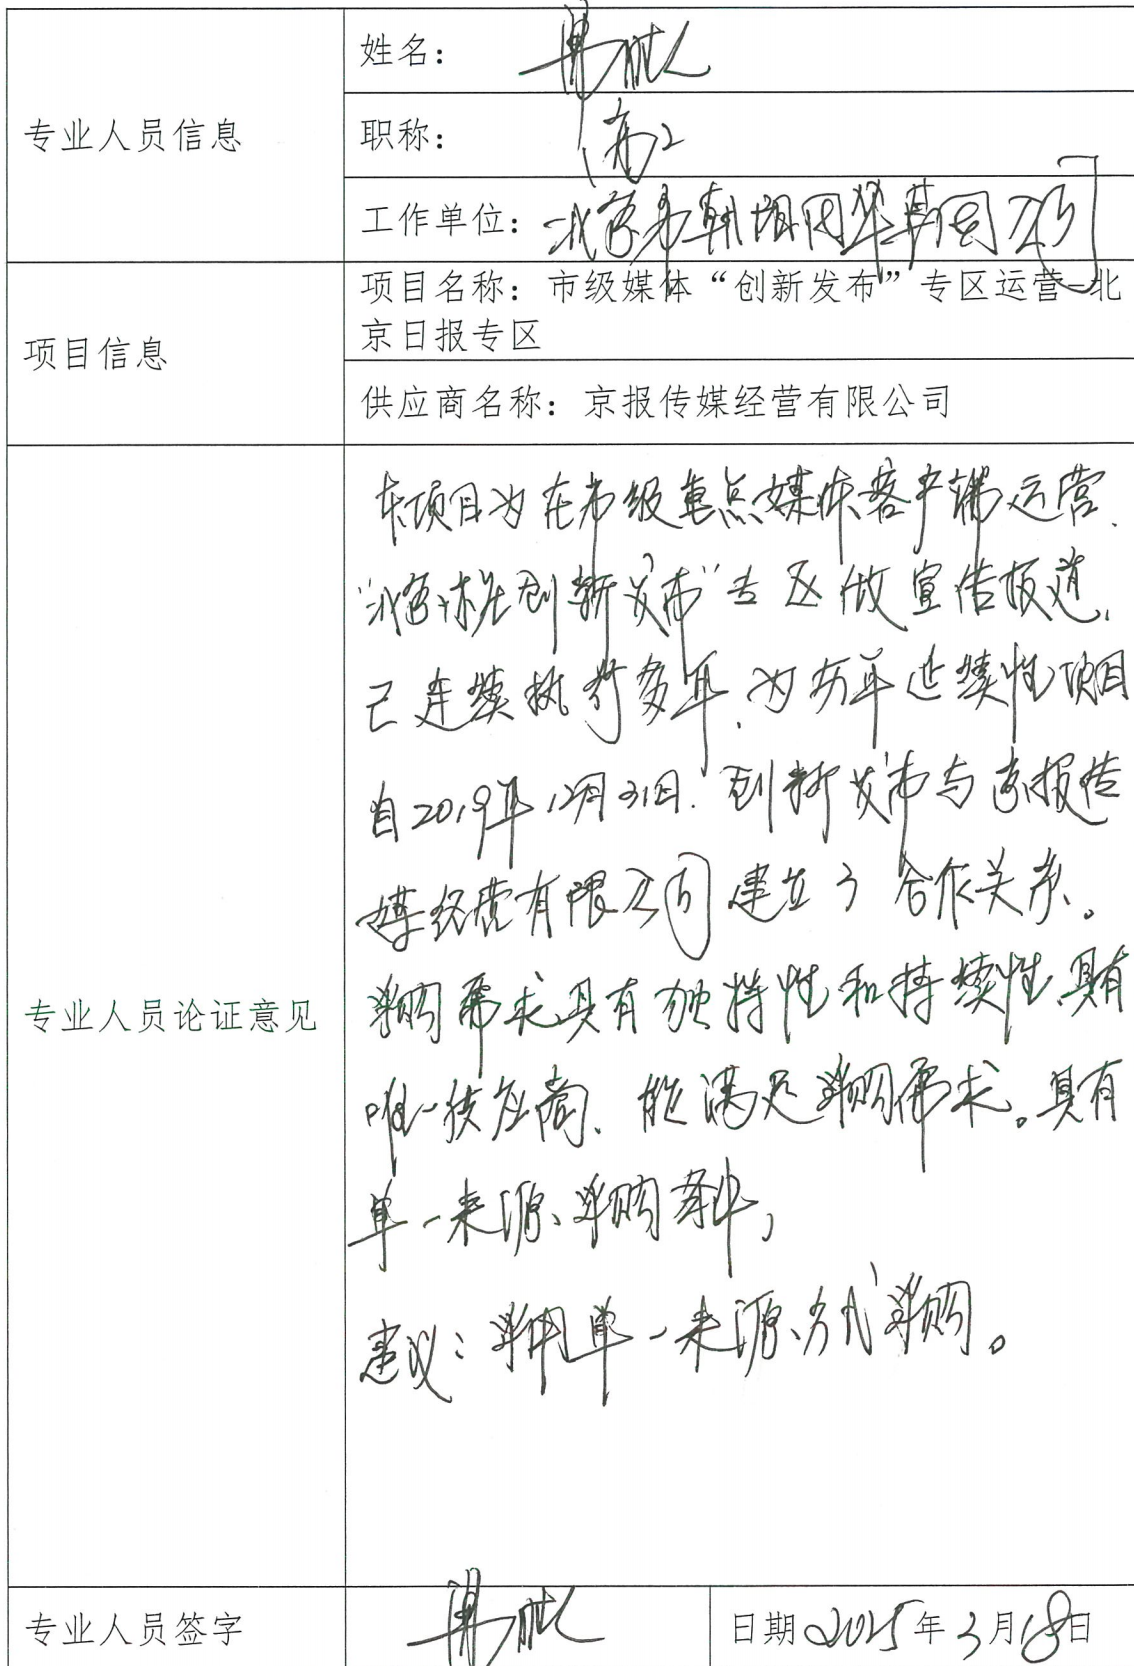 专业人员信息
姓名：
职称：高工
工作单位：北京市朝阳园林
项目信息
项目名称：市级媒体“创新发布”专区运营-北
京日报专区
供应商名称：京报传媒经营有限公司
专业人员论证意见
本项目为在市级重点媒体客户端运营、
“北京市创新发布”专区做宣传报道，
已连续执行多年，为历年延续性项目
自2019年12月31日，创新发布与京报传
媒经营有限公司建立了合作关系。
采购需求具有独特性和持续性，具有
唯一供应商、能满足采购需求。具有
单一来源采购条件，
建议：采用单一来源方式采购。
专业人员签字
日期2025年3月18日